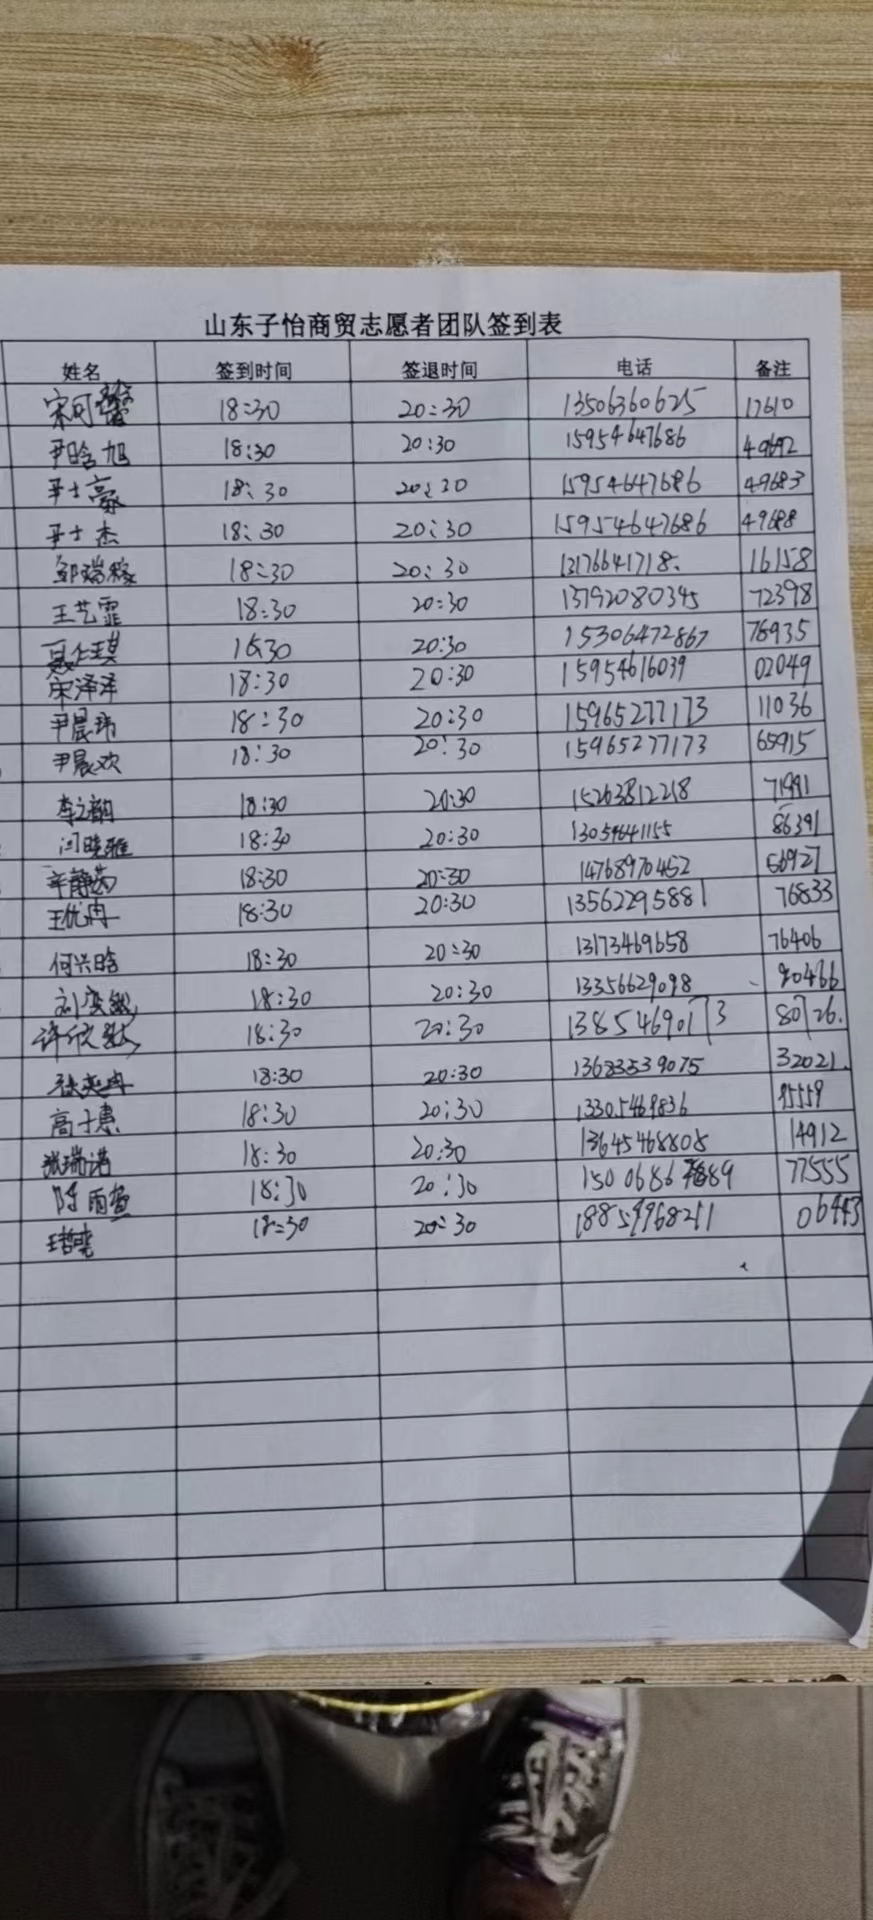 山东子怡商贸志愿者团队签到表
姓名 签到时间 签退时间 电话 备注
宋可馨 18:30 20:30 13506360625 17610
尹晗旭 18:30 20:30 15954647686 49692
尹士豪 18:30 20:30 15954647686 49683
尹士杰 18:30 20:30 15954647686 49688
邹瑞稼 18:30 20:30 13176641718. 16158
王艺霏 18:30 20:30 13792080345 72398
聂仕琪 20:30 15306472867 76935
宋泽泽 18:30 20:30 15954616039 02049
尹晨玮 18:30 20:30 15965277173 11036
尹晨欢 18:30 20:30 15965277173 65915
李之 18:30 20:30 15263812218 71991
闫晓雅 18:30 20:30 13054641155 86391
辛静茹 18:30 20:30 14768970452 56927
王优冉 18:30 20:30 13562295881 76833
何兴晗 18:30 20:30 13173469658 76406
刘奕 18:30 20:30 13356629098 90466
许欣 18:30 20:30 13854690173 80726.
张奕冉 18:30 20:30 13683539075 32021.
高子惠 18:30 20:30 13305469836 95559
张瑞诺 18:30 20:30 13645468808 14912
陈雨萱 18:30 20:30 1500686 89 77555
王哲奕 18:30 20:30 18854968211 06443